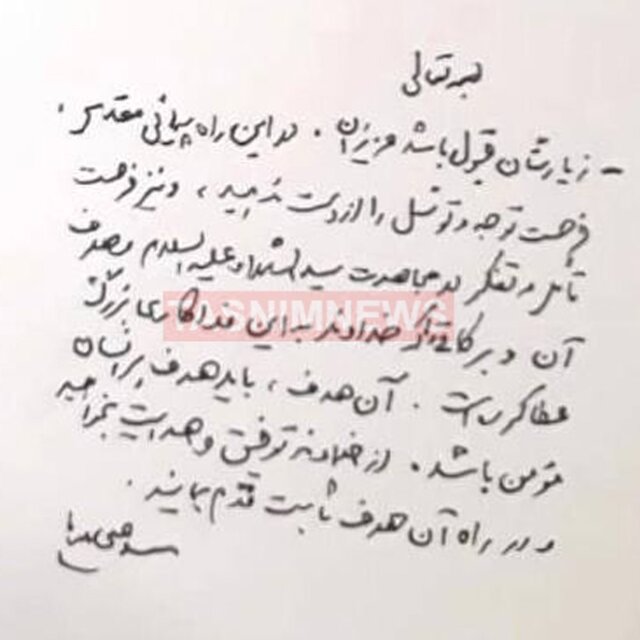 بسمه تعالی
- زیارتتان قبول باشد عزیزان . در این راه پیمائی مقدس ،
فرصت توجه و توسّل را از دست ندهید ، و نیز فرصت
تأمل و تفکر در مجاهدت سیدالشهداء علیه السلام و هدف
آن و برکاتی که خداوند به این فداکاری بزرگ
TASNIMNEWS
عطا کرده است . آن هدف ، باید هدف هر انسان
مؤمن باشد . از خداوند توفیق و هدایت بخواهید
و در راه آن هدف ثابت قدم بمانید .